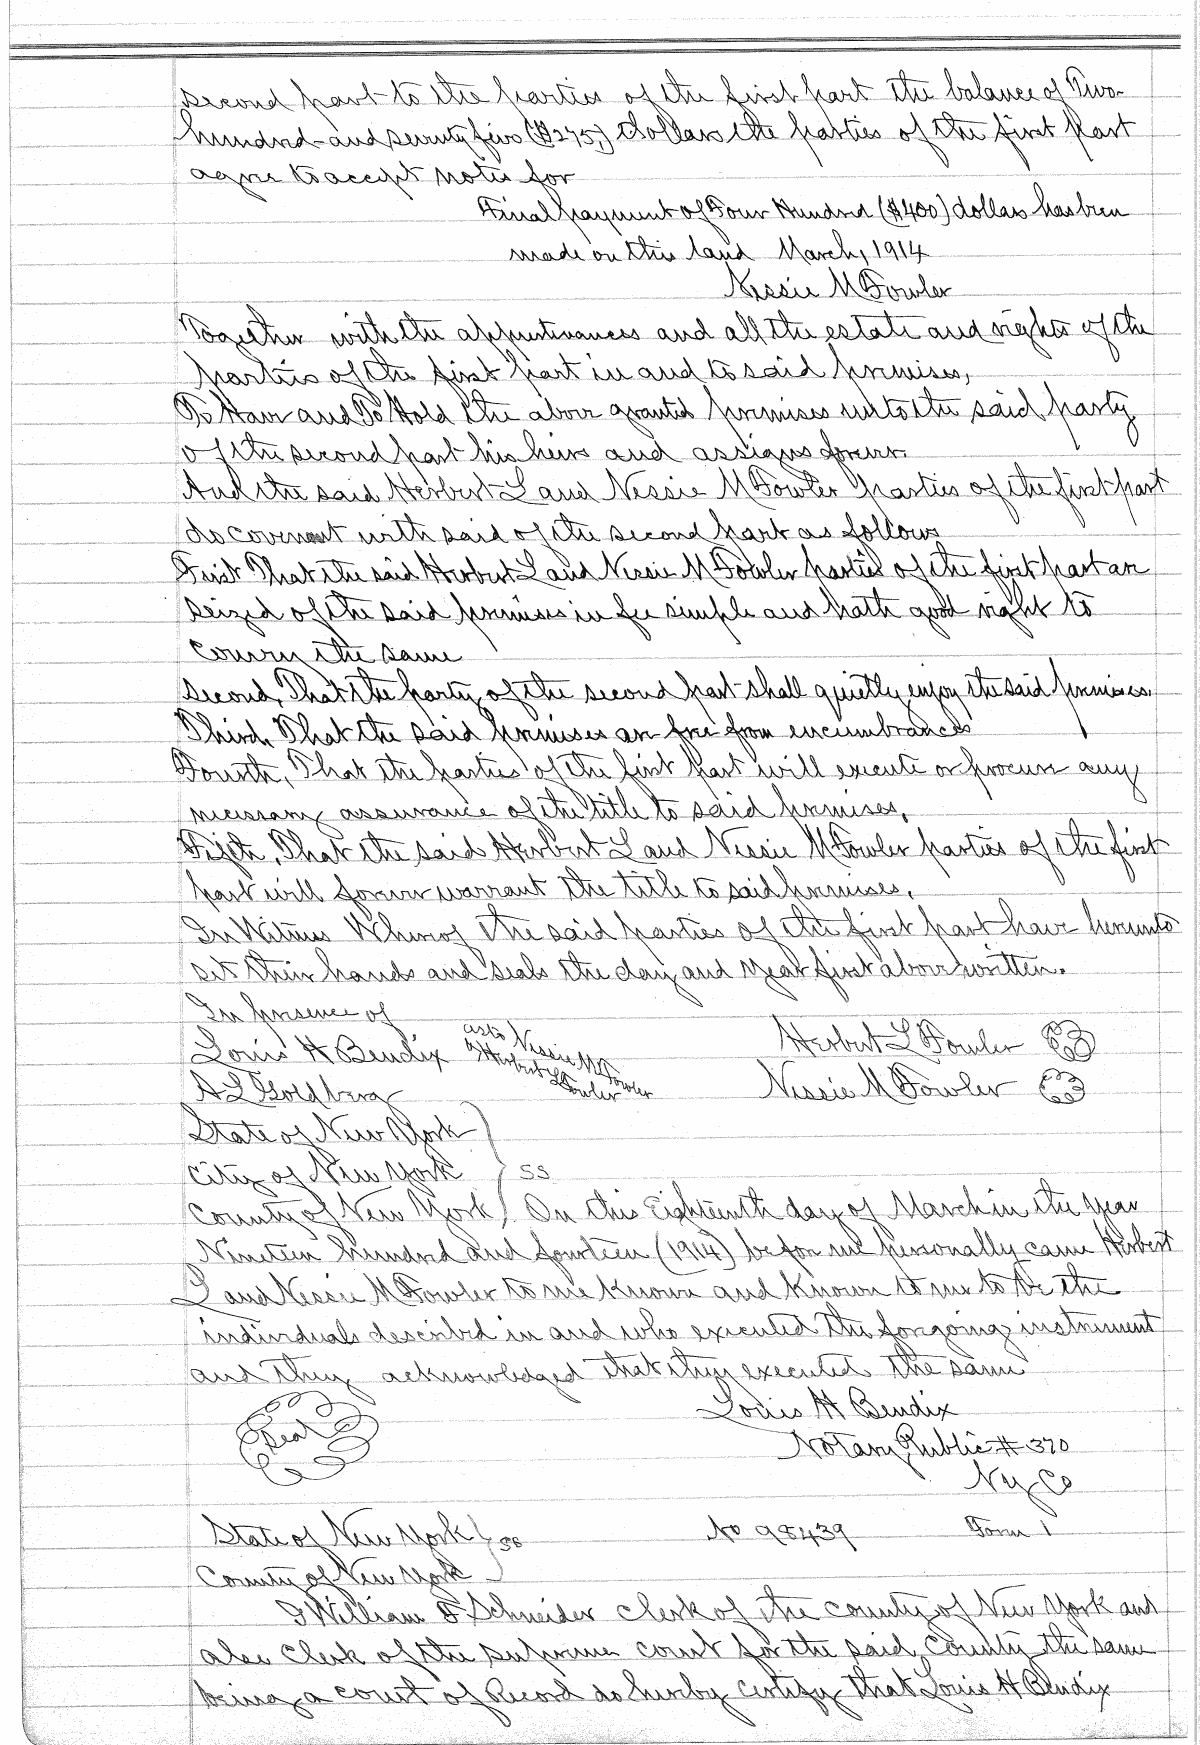 second part to the parties of the first part the balance of Two-
hundred-and seventy five ($275,) dollars the parties of the first part
agree to accept notes for
Final payment of Four Hundred ($400) dollars has been
made on this land March, 1914
Nessie M Fowler
Together with the appurtenances and all the estate and rights of the
parties of the first part in and to said premises,
To Have and To Hold the above granted premises unto the said party
of the second part his heirs and assigns forever.
And the said Herbert L and Nessie M Fowler parties of the first part
do covenant with said of the second part as follows
First That the said Herbert L and Nessie M Fowler parties of the first part are
seized of the said premises in fee simple and hath good right to
convey the same
Second, That the party of the second part shall quietly enjoy the said premises,
Third, That the said premises are free from encumbrances
Fourth, That the parties of the first part will execute or procure any
necessary assurance of the title to said premises,
Fifth, That the said Herbert L and Nessie M Fowler parties of the first
part will forever warrant the title to said premises,
In Witness Whereof the said parties of the first part have hereunto
set their hands and seals the day and year first above written.
In presence of
Louis H Bendix as to Nessie M Fowler Herbert L Fowler
& Herbert L Fowler
A L Goldberg Nessie M Fowler
State of New York )
City of New York ) SS
County of New York ) On this Eighteenth day of March in the year
Nineteen hundred and fourteen (1914) before me personally came Herbert
L and Nessie M Fowler to me known and known to me to be the
individuals described in and who executed the foregoing instrument
and they acknowledged that they executed the same
Louis H Bendix
Seal
Notary Public # 370
N.Y. Co
State of New York ) ss No 98439 Form 1
County of New York )
I William F Schneider clerk of the county of New York and
also Clerk of the supreme court for the said County the same
being a court of Record do hereby certify that Louis H Bendix